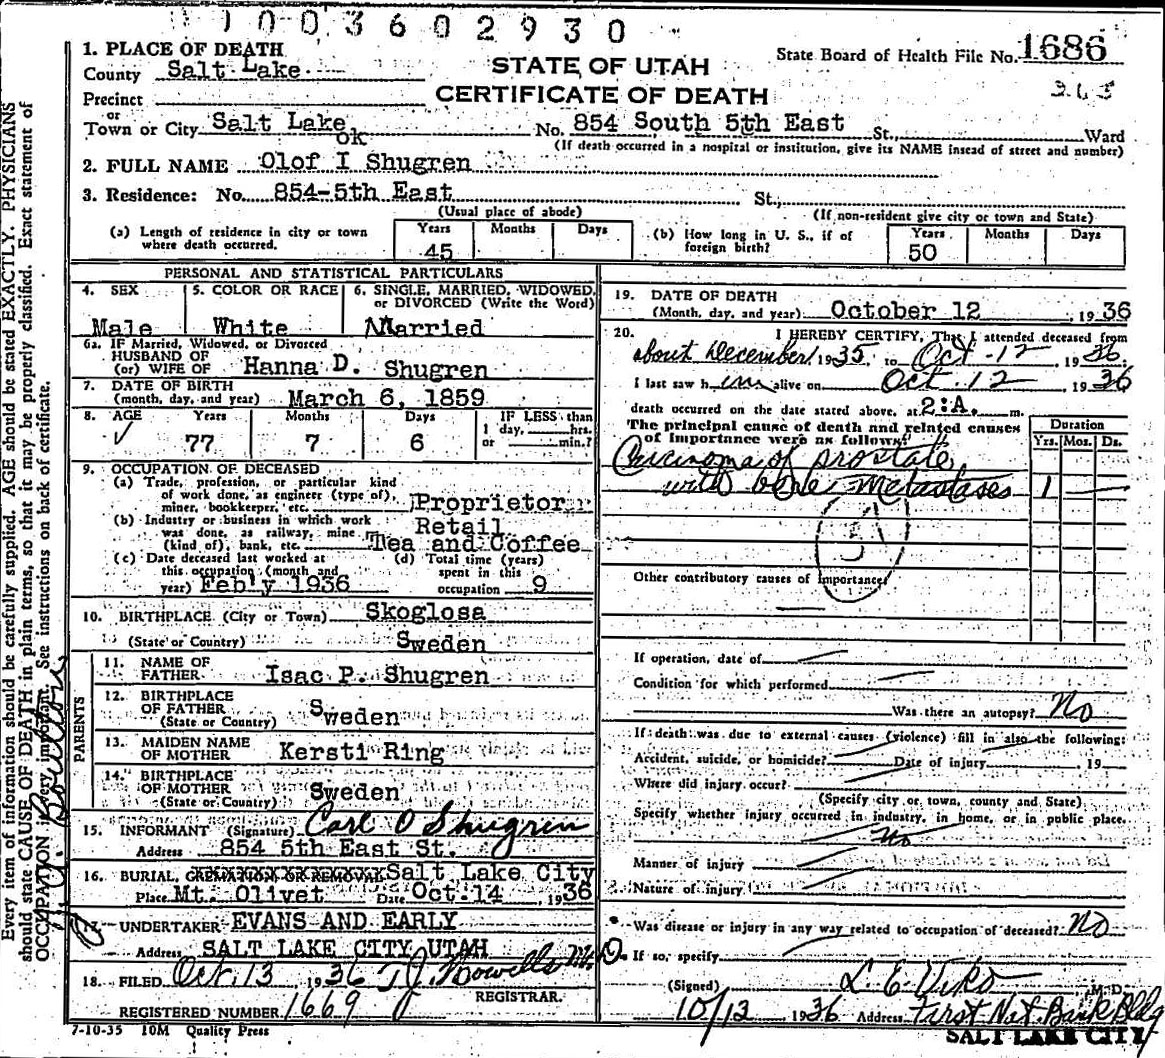 1003602930
1. PLACE OF DEATH
County Salt Lake
STATE OF UTAH
State Board of Health File No. 1686
Precinct
CERTIFICATE OF DEATH
365
or
Town or City Salt Lake No. 854 South 5th East St., Ward
ok
(If death occurred in a hospital or institution, give its NAME insead of street and number)
2. FULL NAME Olof I Shugren
3. Residence: No. 854-5th East St.,
(Usual place of abode) (If non-resident give city or town and State)
(a) Length of residence in city or town where death occurred. Years 45 Months Days
(b) How long in U. S., if of foreign birth? Years 50 Months Days
PERSONAL AND STATISTICAL PARTICULARS
4. SEX Male
5. COLOR OR RACE White
6. SINGLE, MARRIED, WIDOWED, or DIVORCED (Write the Word) Married
6a. IF Married, Widowed, or Divorced
HUSBAND OF
(or) WIFE OF Hanna D. Shugren
7. DATE OF BIRTH
(month, day, and year) March 6, 1859
8. AGE Years Months Days IF LESS than
1 day, hrs.
or min.?
77 7 6
9. OCCUPATION OF DECEASED
(a) Trade, profession, or particular kind
of work done, as engineer (type of),
miner, bookkeeper, etc. Proprietor
(b) Industry or business in which work
was done, as railway, mine
(kind of), bank, etc. Retail
Tea and Coffee
(c) Date deceased last worked at
this occupation (month and
year) Feb'y 1936
(d) Total time (years)
spent in this
occupation 9
10. BIRTHPLACE (City or Town) Skoglosa
(State or Country) Sweden
PARENTS
11. NAME OF
FATHER Isac P. Shugren
12. BIRTHPLACE
OF FATHER
(State or Country) Sweden
13. MAIDEN NAME
OF MOTHER Kersti Ring
14. BIRTHPLACE
OF MOTHER
(State or Country) Sweden
15. INFORMANT (Signature) Carl O Shugren
Address 854 5th East St.
16. BURIAL, CREMATION OR REMOVAL Salt Lake City
Place Mt. Olivet Date Oct. 14, 1936
17. UNDERTAKER EVANS AND EARLY
Address SALT LAKE CITY, UTAH
18. FILED Oct. 13 1936 T.J. Howells M.D.
REGISTRAR.
REGISTERED NUMBER 1669
7-10-35 10M Quality Press
19. DATE OF DEATH
(Month, day, and year) October 12, 1936
20. I HEREBY CERTIFY, That I attended deceased from
about December 1935, to Oct-12, 1936.
I last saw him alive on Oct. 12 1936
death occurred on the date stated above, at 2:A. m.
The principal cause of death and related causes
of importance were as follows:
Duration
Yrs. Mos. Ds.
Carcinoma of prostate
with bone metastases 1
Other contributory causes of importance:
If operation, date of
Condition for which performed
Was there an autopsy? No
If death was due to external causes (violence) fill in also the following:
Accident, suicide, or homicide? Date of injury, 19
Where did injury occur?
(Specify city or town, county and State)
Specify whether injury occurred in industry, in home, or in public place.
No
Manner of injury
Nature of injury
Was disease or injury in any way related to occupation of deceased? No
If so, specify
(Signed) L. E. Viko M.D.
10/13 1936 Address First Nat. Bank Bldg
SALT LAKE CITY
Every item of information should be carefully supplied. AGE should be stated EXACTLY. PHYSICIANS
should state CAUSE OF DEATH in plain terms, so that it may be properly classified. Exact statement of
OCCUPATION is very important. See instructions on back of certificate.